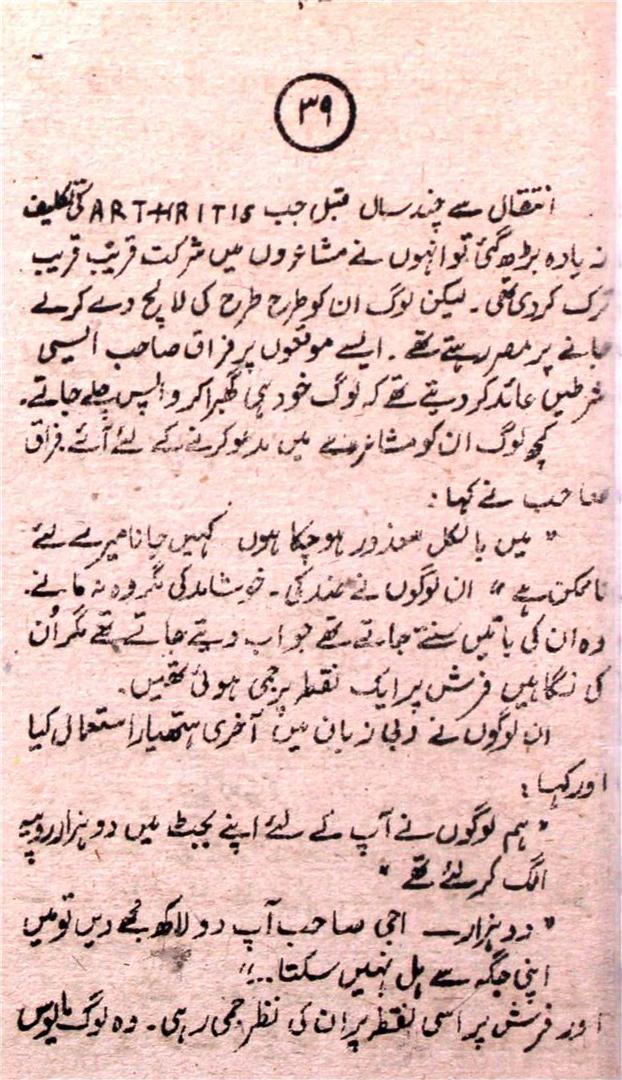 ۳۹
انتقال سے چند سال قبل جب ARTHRITIS کی تکلیف
زیادہ بڑھ گئی تو انہوں نے مشاعروں میں شرکت قریب قریب
ترک کر دی تھی۔ لیکن لوگ ان کو طرح طرح کی لالچ دے کر لے
جانے پر مصر رہتے تھے۔ ایسے موقعوں پر فراق صاحب ایسی
شرطیں عائد کر دیتے تھے کہ لوگ خود ہی گھبرا کر واپس چلے جاتے۔
کچھ لوگ ان کو مشاعرے میں مدعو کرنے کے لئے آئے۔ فراق
صاحب نے کہا:
" میں بالکل معذور ہو چکا ہوں کہیں جانا میرے لئے
ناممکن ہے " ان لوگوں نے ضد کی۔ خوشامد کی مگر وہ نہ مانے۔
وہ ان کی باتیں سنتے جاتے تھے جواب دیتے جاتے تھے مگر اُن
کی نگاہیں فرش پر ایک نقطہ پر جمی ہوئی تھیں۔
ان لوگوں نے دبی زبان میں آخری ہتھیار استعمال کیا
اور کہا:
" ہم لوگوں نے آپ کے لئے اپنے بجٹ میں دو ہزار روپیہ
الگ کر لئے تھے "
" دو ہزار — اجی صاحب آپ دو لاکھ مجھے دیں تو میں
اپنی جگہ سے ہل نہیں سکتا..."
اور فرش پر اسی نقطہ پر ان کی نظر جمی رہی۔ وہ لوگ مایوس